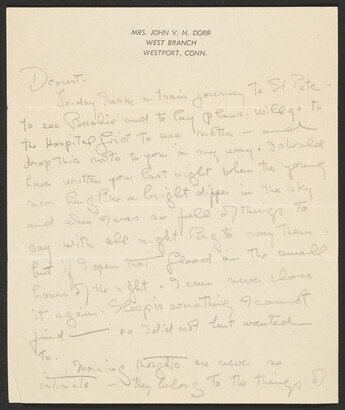 MRS. JOHN V. N. DORR
WEST BRANCH
WESTPORT, CONN.
Dearest.
To-day I make a train journey to St Pete -
to see and to lay plans. Will go to
the Hospital first to see mother - and
drop this note to you in my way. I should
have written you last night when the young
moon hung like a bright dipper in the sky
and when I was so full of things to
say with all night long to say them.
but if I open that flood in the small
hours of the night. I can never close
it again. Sleep is something I cannot
find — so I did not but wanted
to.
Morning thoughts are never so
intimate - they belong to the things of